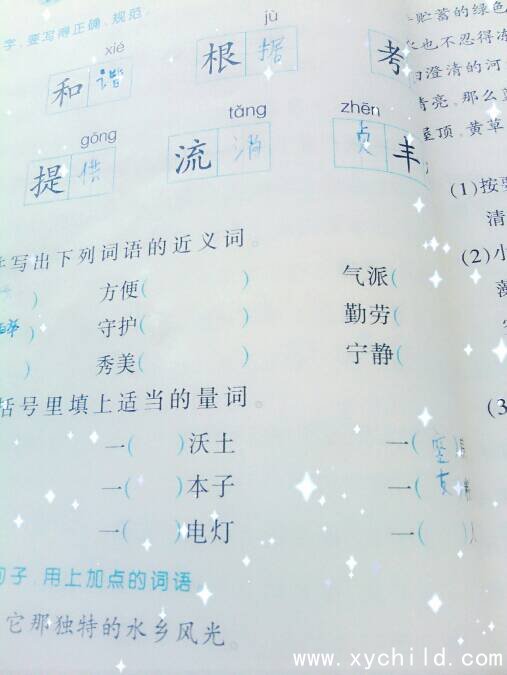 字，要写得正确、规范。
xié jù
和谐 根据 考
gōng tǎng zhēn
提供 流淌 贞丰
写出下列词语的近义词。
) 方便( ) 气派(
) 守护( ) 勤劳(
) 秀美( ) 宁静(
括号里填上适当的量词。
一( )沃土 一(座)
一( )本子 一(支)
一( )电灯 一( )
句子，用上加点的词语
它那独特的水乡风光。
贮蓄的绿色
水也不忍得冻
澄清的河
清亮，那么
屋顶，黄草
(1)按要
清
(2)小
薄
(3
www.xychild.com